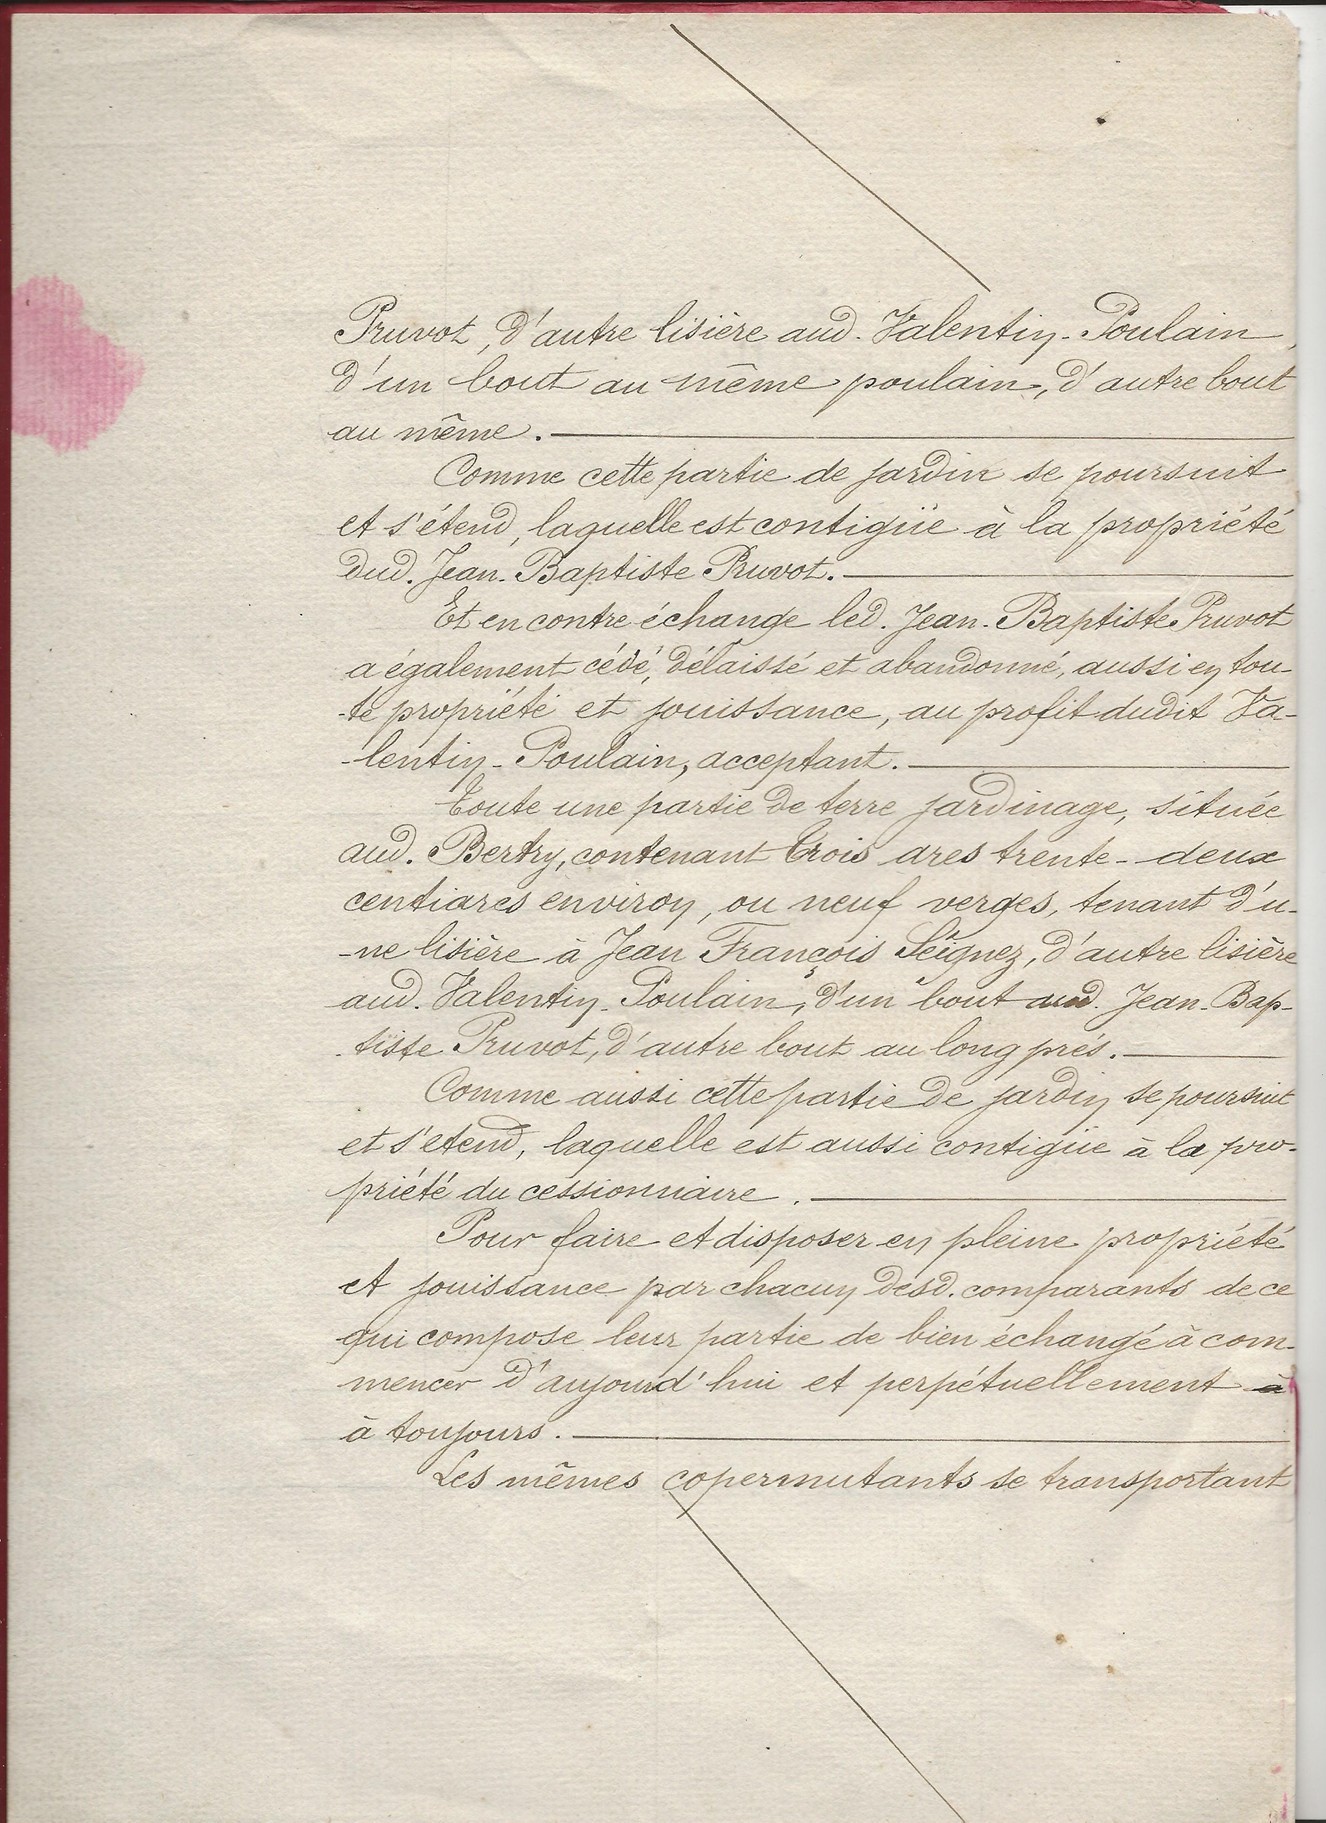 Pruvot, d'autre lisière aud. Valentin-Poulain,
d'un bout au même poulain, d'autre bout
au même.
Comme cette partie de jardin se poursuit
et s'étend, laquelle est contigüe à la propriété
dud. Jean-Baptiste Pruvot.
Et en contre échange led. Jean-Baptiste Pruvot
a également cédé, délaissé et abandonné, aussi en tou-
-te propriété et jouissance, au profit dudit Va-
-lentin-Poulain, acceptant.
Toute une partie de terre jardinage, située
aud. Bertry, contenant trois ares trente-deux
centiares environ, ou neuf verges, tenant d'u-
-ne lisière à Jean François Seignez, d'autre lisière
aud. Valentin-Poulain, d'un bout aud. Jean-Bap-
-tiste Pruvot, d'autre bout au long prés.
Comme aussi cette partie de jardin se poursuit
et s'etend, laquelle est aussi contigüe à la pro-
priété du cessionnaire.
Pour faire et disposer en pleine propriété
et jouissance par chacun desd. comparants de ce
qui compose leur partie de bien échangé à com-
mencer d'aujourd'hui et perpétuellement à
à toujours.
Les mêmes copermutants se transportant